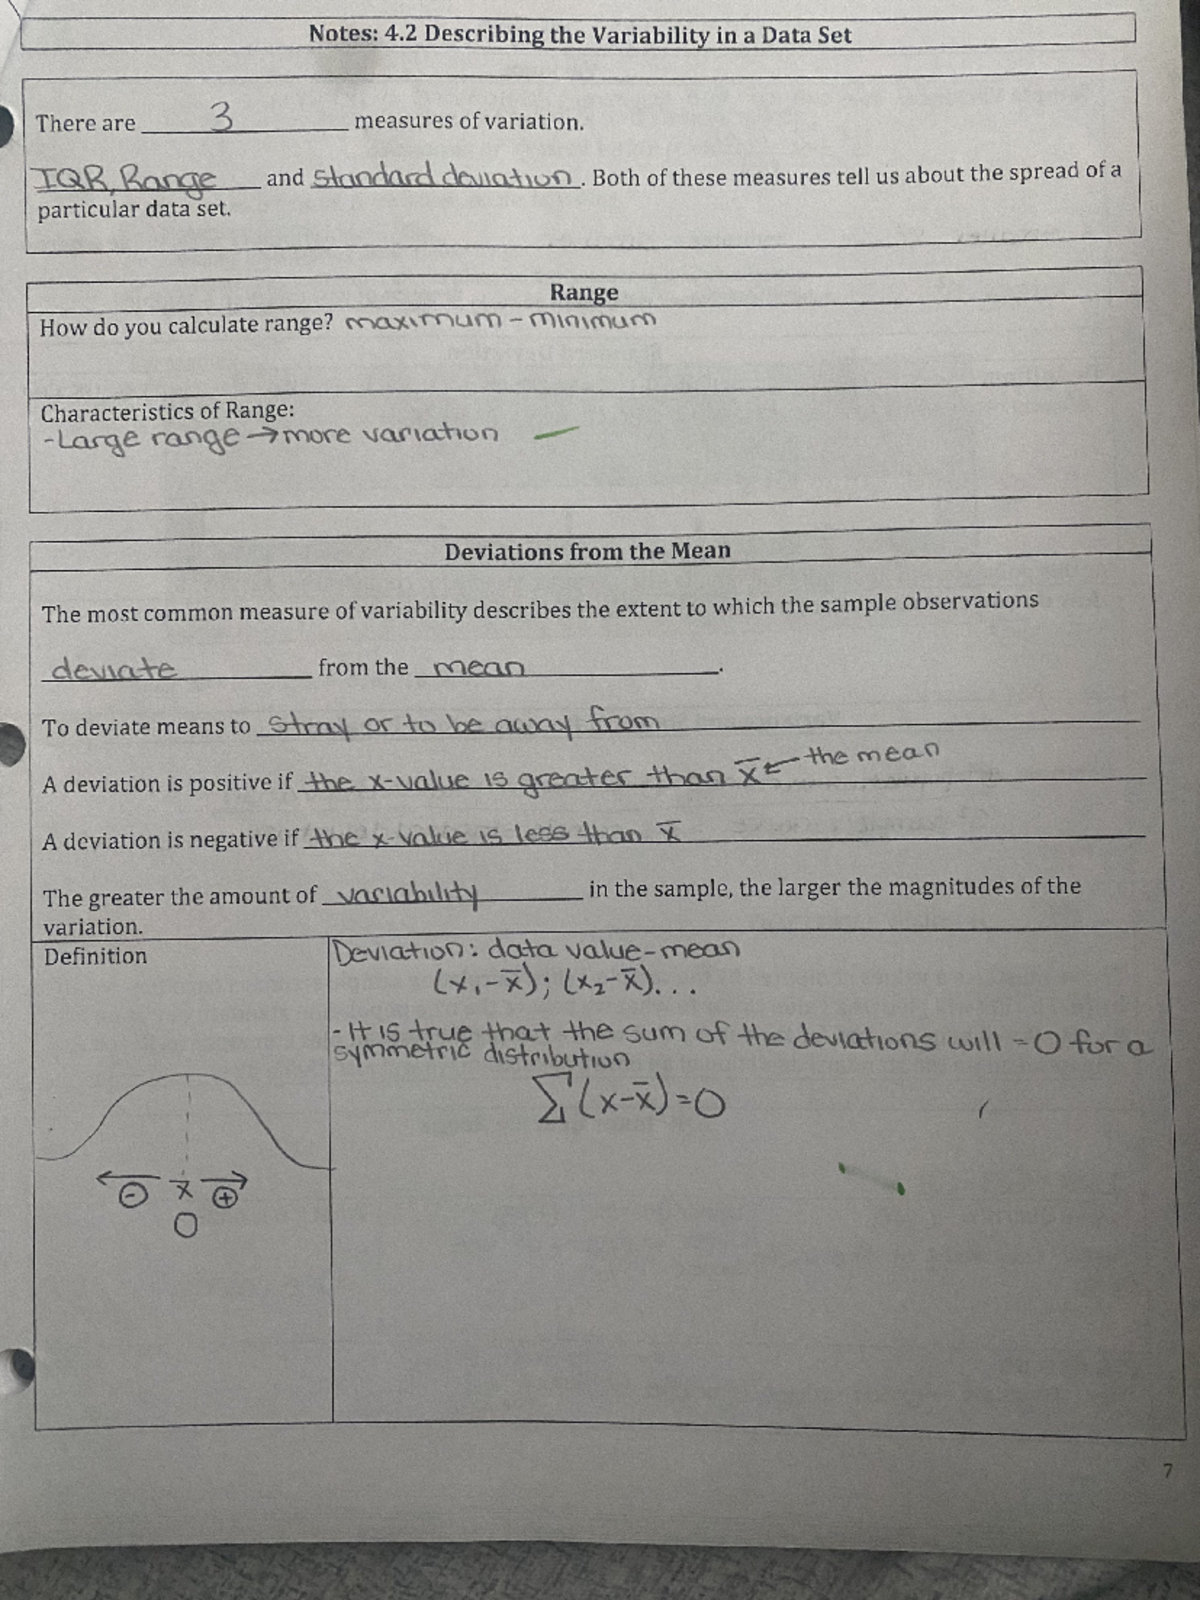 Notes: 4.2 Describing the Variability in a Data Set
There are 3 measures of variation.
IQR, Range and standard deviation. Both of these measures tell us about the spread of a
particular data set.
Range
How do you calculate range? maximum - minimum
Characteristics of Range:
-Large range → more variation
Deviations from the Mean
The most common measure of variability describes the extent to which the sample observations
deviate from the mean.
To deviate means to stray or to be away from
A deviation is positive if the x-value is greater than x̄ ← the mean
A deviation is negative if the x-value is less than x̄
The greater the amount of variability in the sample, the larger the magnitudes of the
variation.
Definition
Deviation: data value-mean
(x₁-x̄); (x₂-x̄)...
-It is true that the sum of the deviations will =0 for a
symmetric distribution
Σ(x-x̄)=0
- x̄ +
0
7